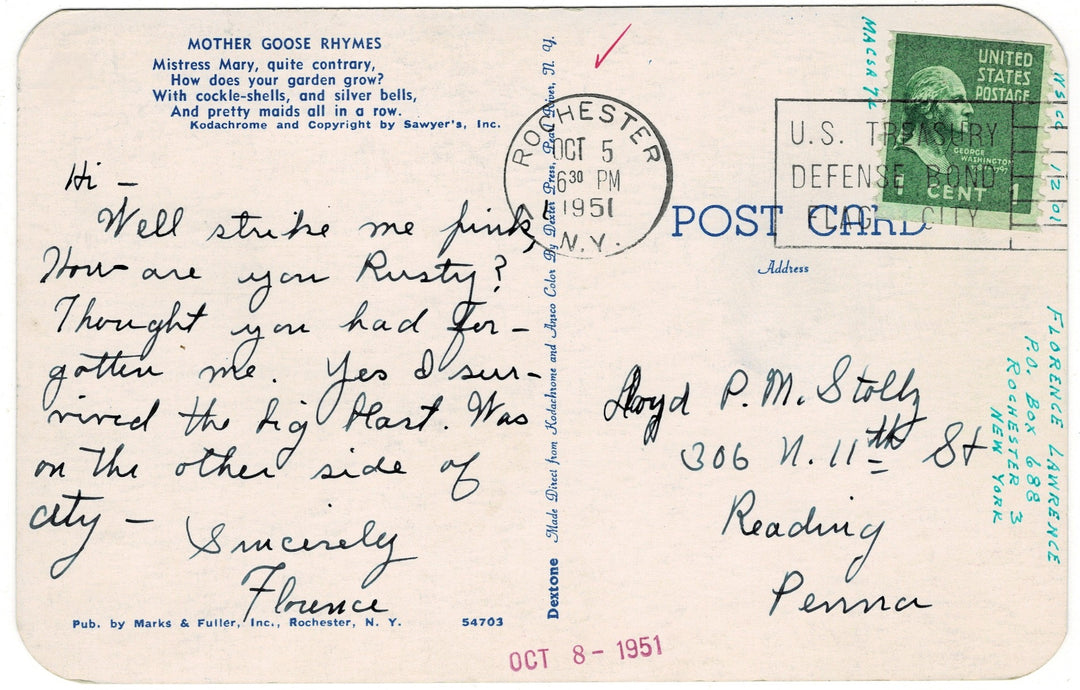 MOTHER GOOSE RHYMES
Mistress Mary, quite contrary,
How does your garden grow?
With cockle-shells, and silver bells,
And pretty maids all in a row.
Kodachrome and Copyright by Sawyer's, Inc.
Hi -
Well strike me pink,
How are you Rusty?
Thought you had for-
gotten me. Yes I sur-
vived the big blast. Was
on the other side of
city -
Sincerely
Florence
Pub. by Marks & Fuller, Inc., Rochester, N. Y.
54703
Dextone Made Direct from Kodachrome and Ansco Color By Dexter Press, Pearl River, N. Y.
ROCHESTER
OCT 5
6 30 PM
1951
N.Y.
U.S. TREASURY
DEFENSE BOND
FLAG CITY
UNITED
STATES
POSTAGE
GEORGE
WASHINGTON
1 CENT 1
POST CARD
Address
Lloyd P. M. Stoltz
306 N. 11th St
Reading
Penna
FLORENCE LAWRENCE
P.O. BOX 688
ROCHESTER 3
NEW YORK
OCT 8 - 1951